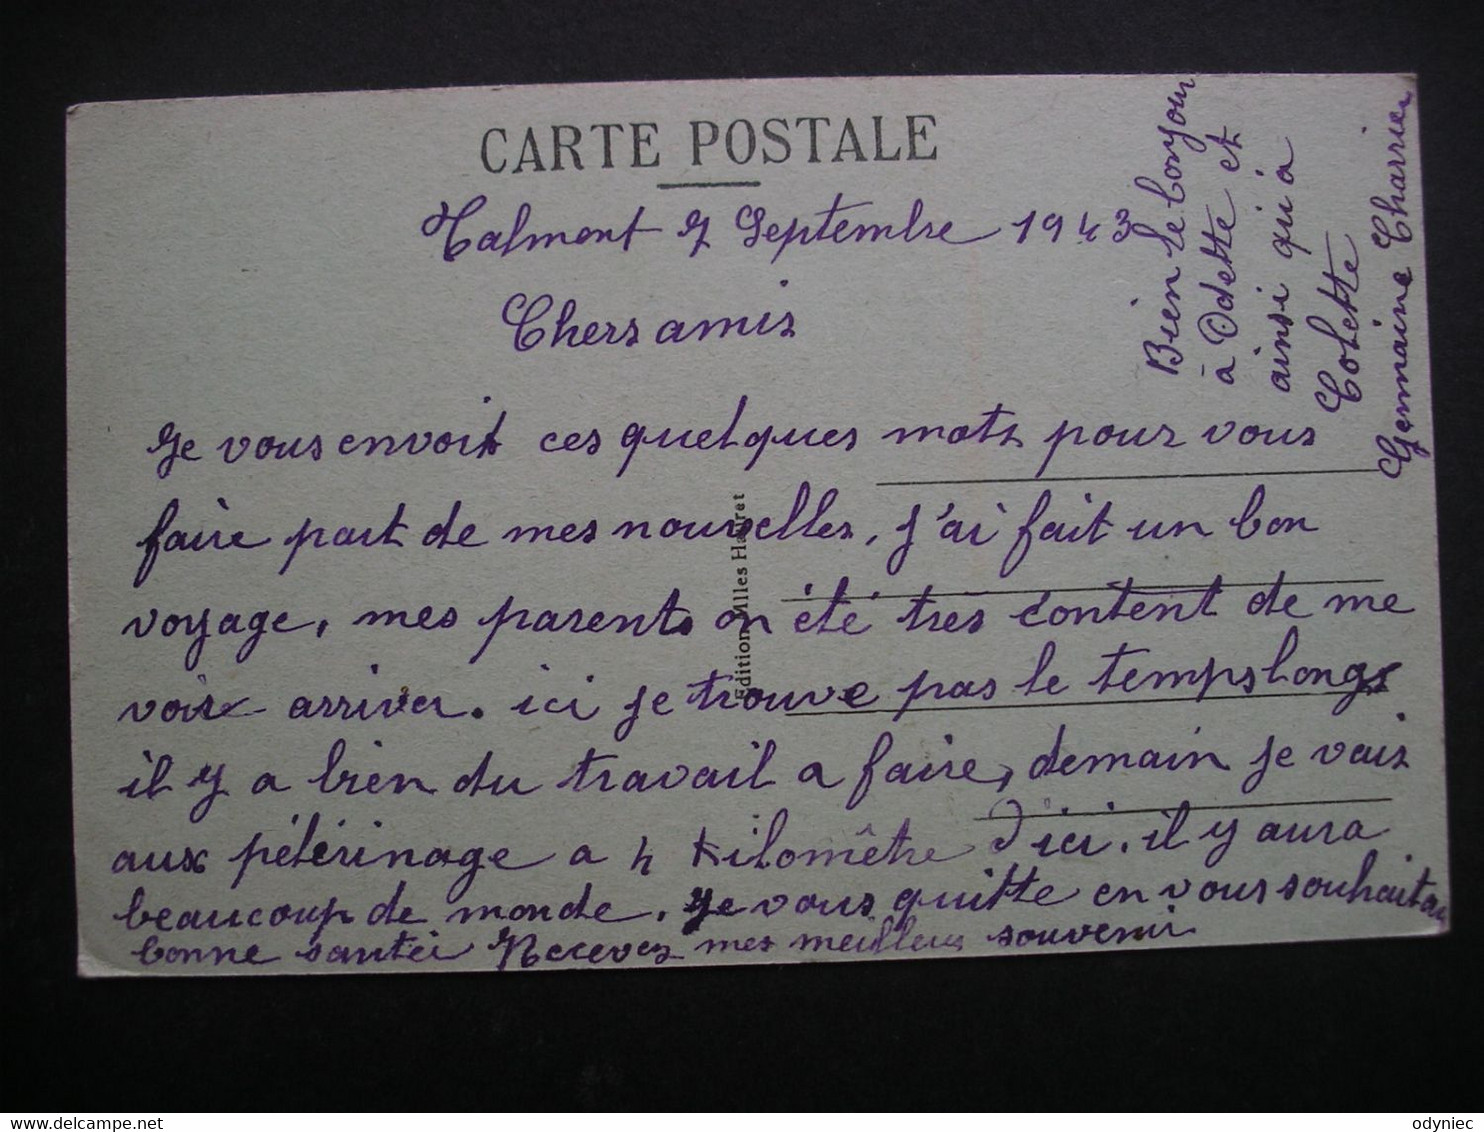 CARTE POSTALE
Talmont 7 Septembre 1943
Chers amis
Je vous envoit ces quelques mots pour vous
faire part de mes nouvelles, j'ai fait un bon
voyage, mes parents on été très content de me
voir arriver. ici je trouve pas le temps long
il y a bien du travail a faire, demain je vais
aux pélérinage a 4 kilomêtre d'ici. il y aura
beaucoup de monde. Je vous quitte en vous souhaitan
bonne santéi Recevez mes meilleurs souvenir
Bien le bonjour
à Odette et
ainsi qui a
Colette
Germaine Charrier
Edition Mlles Hauret
© Delcampe odyniec